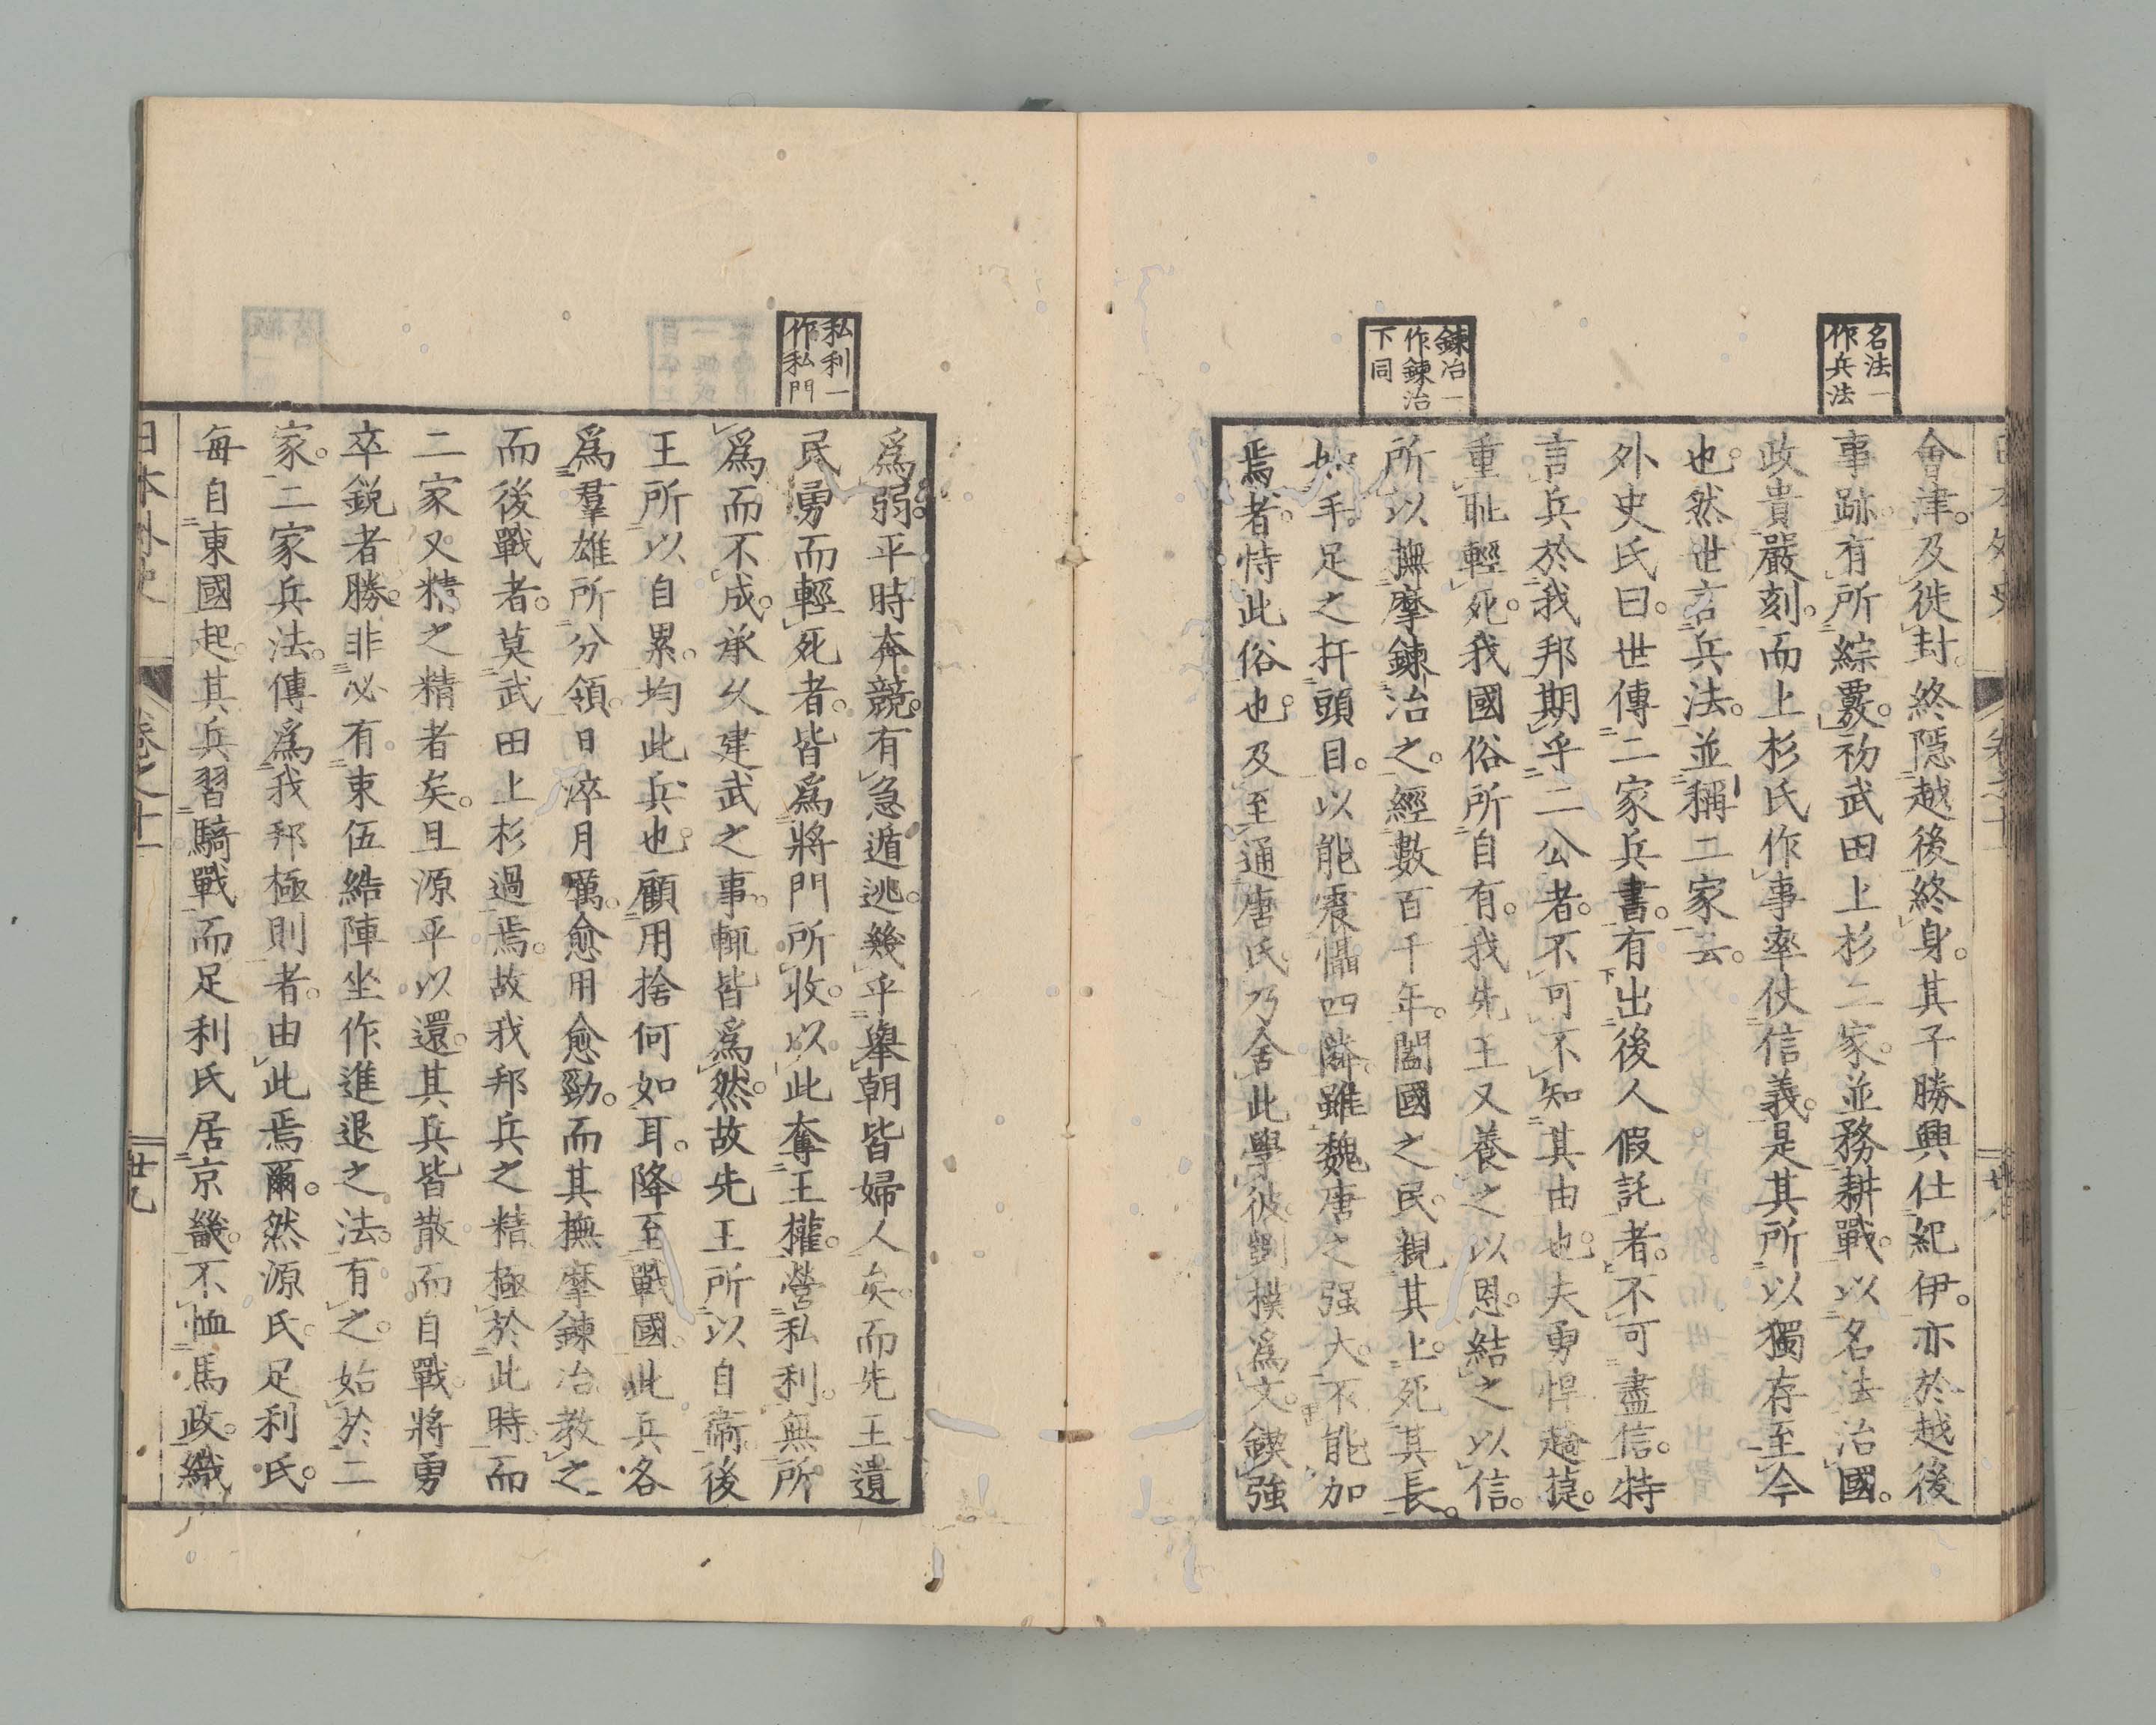 名法一
作兵法
錬冶一
作鍊治
下同
會津。及徙封。終隱越後終身。其子勝興仕紀伊。亦於越後
事跡。有所綜覈。初武田上杉二家。並務耕戰。以名法治國。
政貴嚴刻。而上杉氏作事率仗信義。是其所以獨存至今
也。然世言兵法。並稱二家云。
外史氏曰。世傳二家兵書。有出後人假託者。不可盡信。特
言兵於我邦。期乎二公者。不可不知其由也。夫勇悍趫捷。
重耻輕死。我國俗所自有。我先王又養之以恩。結之以信。
所以撫摩鍊冶之。經數百千年。闔國之民。親其上。死其長。
如手足之扞頭目。以能震懾四隣。雖魏唐之强大。不能加
焉者。恃此俗也。及至通唐氏。乃舍此學彼。斲樸爲文。鍥強
私利一
作私門
爲弱。平時奔競。有急遁逃。幾乎擧朝皆婦人矣。而先王遺
民勇而輕死者。皆爲將門所收。以此奪王權。營私利。無所
爲而不成。承久建武之事。輒皆爲然。故先王所以自衞。後
王所以自累。均此兵也。顧用捨何如耳。降至戰國。此兵各
爲羣雄所分領。日淬月厲。愈用愈勁。而其撫摩鍊冶敎之
而後戰者。莫武田上杉過焉。故我邦兵之精。極於此時。而
二家又精之精者矣。且源平以還。其兵皆散而自戰。將勇
卒銳者勝。非必有束伍結陣坐作進退之法。有之。始於二
家。二家兵法。傳爲我邦極則者。由此焉爾。然源氏足利氏。
每自東國起。其兵習騎戰。而足利氏居京畿。不恤馬政。織
日本外史
卷之十一
廿九